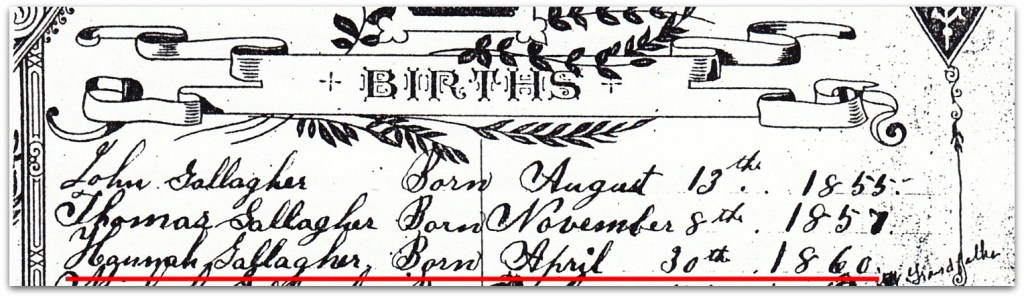 BIRTHS
John Gallagher Born August 13th.. 1855.
Thomas Gallagher Born November 8th. 1857.
Hannah Gallagher, Born April 30th. 1860.
Grandfather